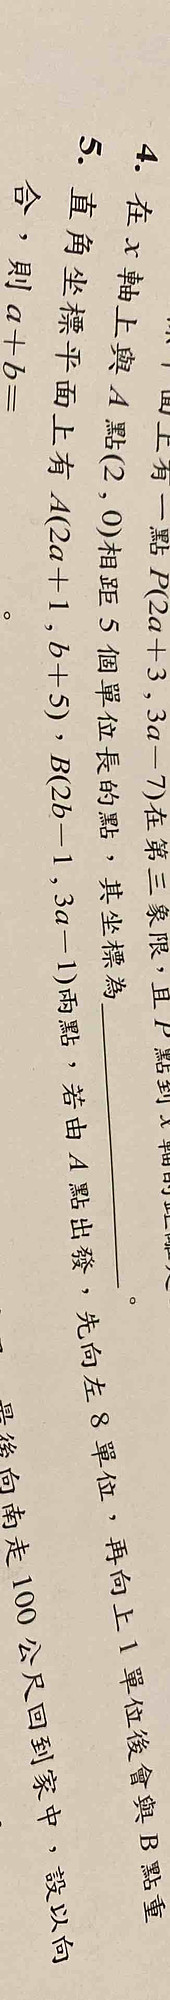 面上有一點P(2a+3，3a−7)在第三象限，且P點到x軸的距離
4. 在x軸上與A點(2，0)相距5個單位長的點，其坐標為________。
5. 直角坐標平面上有A(2a+1，b+5)，B(2b−1，3a−1)兩點，若由A點出發，先向左8單位，再向上1單位後會與B點重
合，則a+b=　　　。
最後向南走100公尺回到家中，設以向